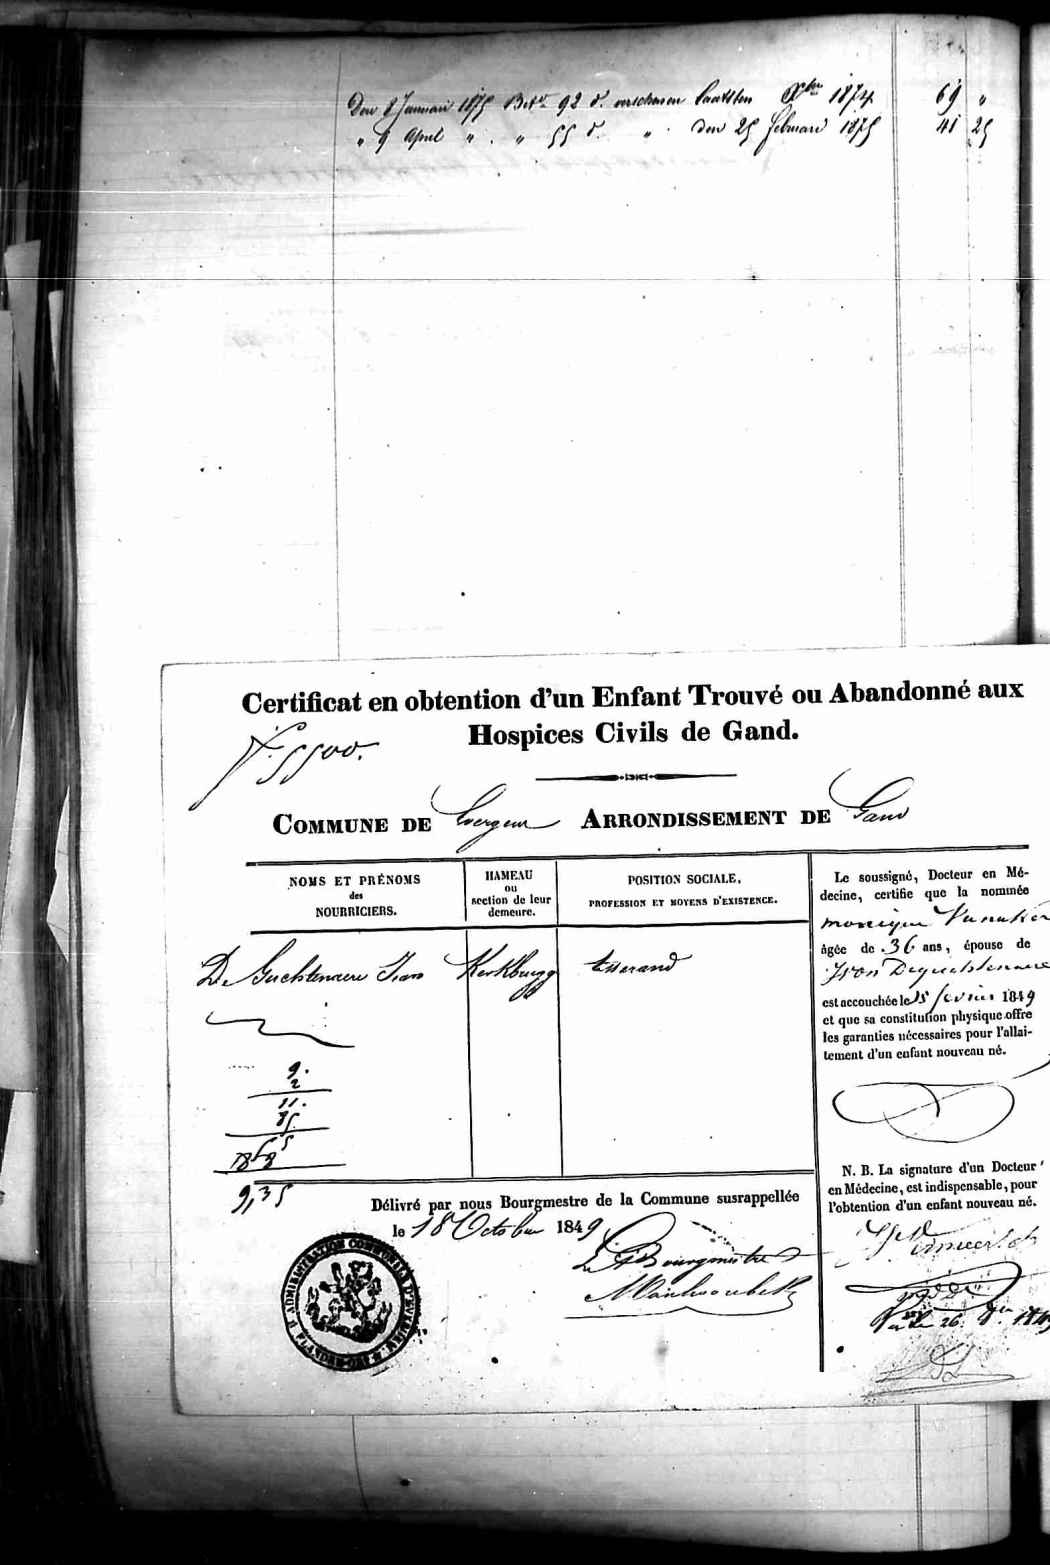 Den 8 Januari 1875 Bet. 92 d. verschenen laatsten Xber 1874 69 "
" 9 April " " " 55 d. " den 25 februari 1875 41 25
Certificat en obtention d'un Enfant Trouvé ou Abandonné aux
Hospices Civils de Gand.
N° 5500.
COMMUNE DE Evergem ARRONDISSEMENT DE Gand
NOMS ET PRÉNOMS
des
NOURRICIERS.
HAMEAU
ou
section de leur
demeure.
POSITION SOCIALE,
PROFESSION ET MOYENS D'EXISTENCE.
De Guchtenaere Ivan Kerkbrugg tisserand
9.
2
11.
85
9,35
Délivré par nous Bourgmestre de la Commune susrappellée
le 18 October 1849
Le Bourgmestre
ADMINISTRATION COMMUNALE D'EVERGEM
FLANDRE-ORI
Le soussigné, Docteur en Mé-
decine, certifie que la nommée
monique
âgée de 36 ans, épouse de
Ivon Deguchtenaere
est accouchée le 15 fevrier 1849
et que sa constitution physique offre
les garanties nécessaires pour l'allai-
tement d'un enfant nouveau né.
N. B. La signature d'un Docteur
en Médecine, est indispensable, pour
l'obtention d'un enfant nouveau né.
26 1849